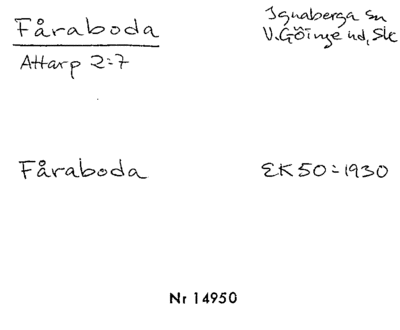 Fåraboda
Attarp 2:7
Ignaberga sn
V. Göinge hd, Sk
Fåraboda
EK 50 = 1930
Nr 14950